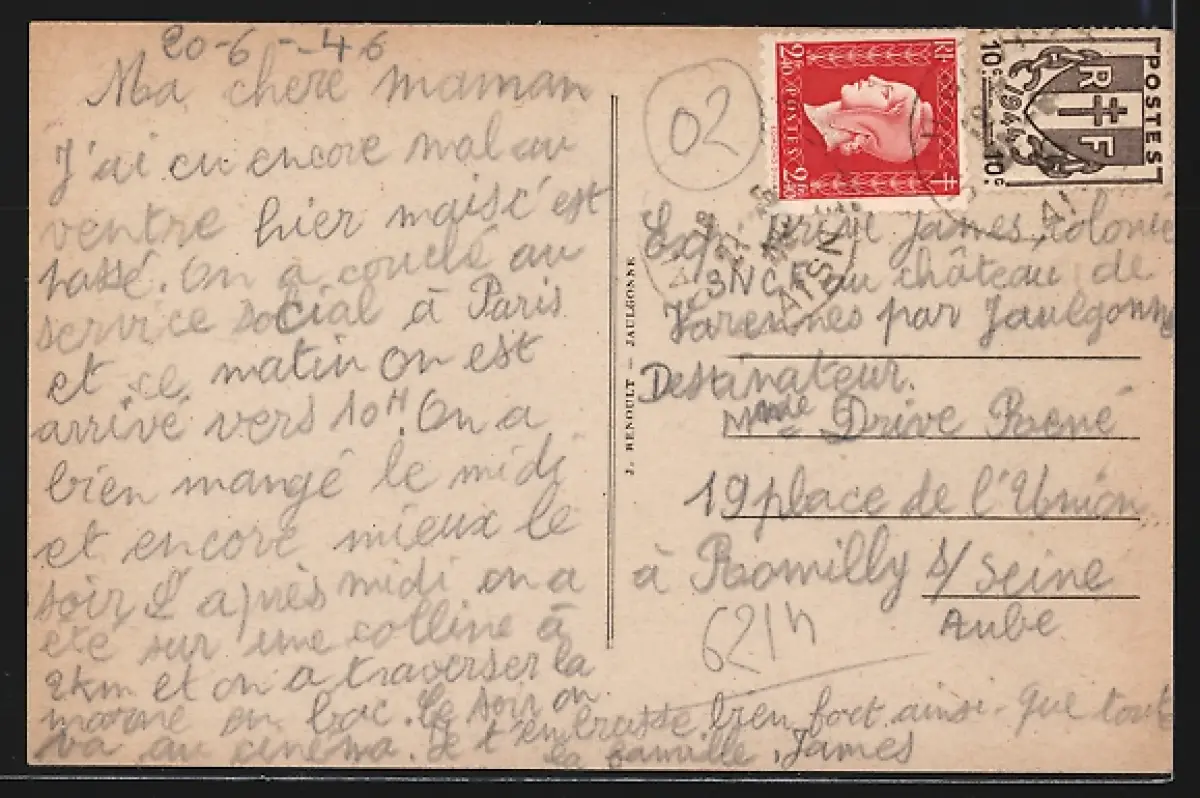 20-6-46
Ma chere maman
J'ai eu encore mal au
ventre hier mais c'est
passé. On a couché au
service social à Paris
et ce matin on est
arrivé vers 10H. On a
bien mangé le midi
et encore mieux le
soir. L'après midi on a
été sur une colline à
2km et on a traverser la
marne en bac. Le soir on
va au cinéma. Je t'embrasse bien fort ainsi que toute
la famille. James
J. RENOULT — JAULGONNE
02
RF
2f40 POSTES 2f40
POSTES
10c 1944 10c
RF
AISNE
Exp. Drive James, Colonie
SNCF au château de
Varennes par Jaulgonne
Destinateur.
Mme Drive René
19 place de l'Union
à Romilly s/ Seine
Aube